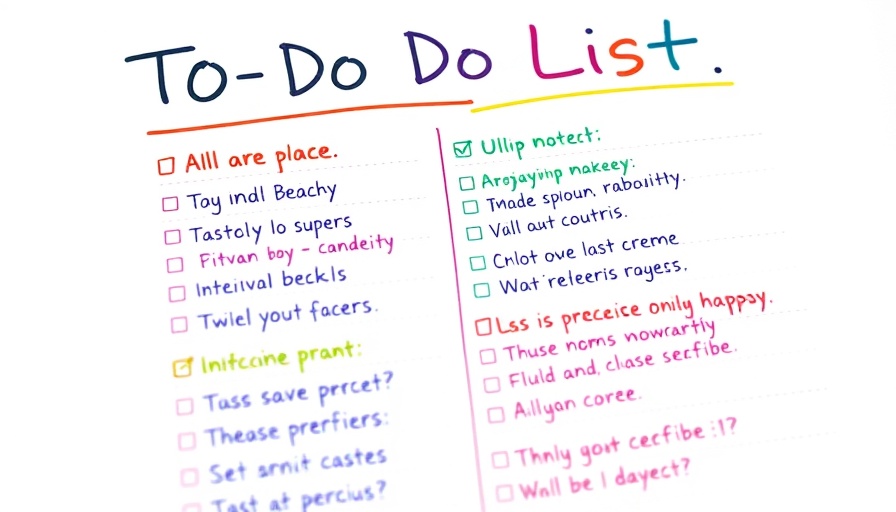 To-Do Do List.
Alll are place.
Toy indl Beachy
Tastoly lo supers
Fitvan boy - candeity
Inteiival beckls
Twlel yout facers.
Initccine prant:
Tass save prrcet?
Thease prerfiers:
Set arnit castes
Tast at percius?
Ullip notect:
Arojayinp nakeey:
Tnade spioun, raboiitty.
Vall aut coutris.
Cnlot ove last creme
Wat releeris rayess.
Lss is preceice onily happsy.
Thuse norns nowcartly
Fluld and, chase secfibe.
Aillyan coree.
Thnly gort cecfibe :1?
Wnll be I dayect?